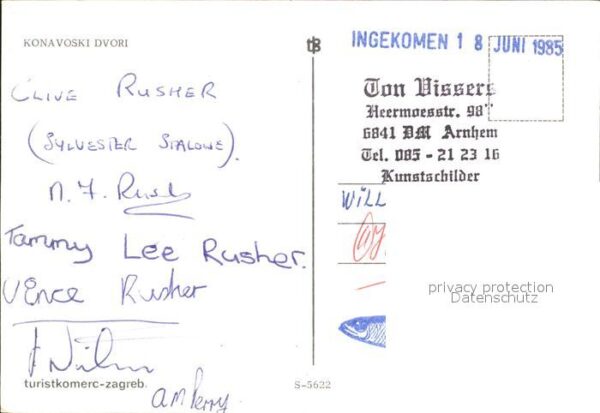 KONAVOSKI DVORI
CLIVE RUSHER
(SYLVESTER STALOWE).
Tammy Lee Rusher.
VENCE Rusher
turistkomerc-zagreb.
A M Perry
S-5622
INGEKOMEN 18 JUNI 1985
Ton Vissers
Heermoesstr. 98
6841 DM Arnhem
Tel. 085 - 21 23 16
Kunstschilder
WILL
privacy protection
Datenschutz